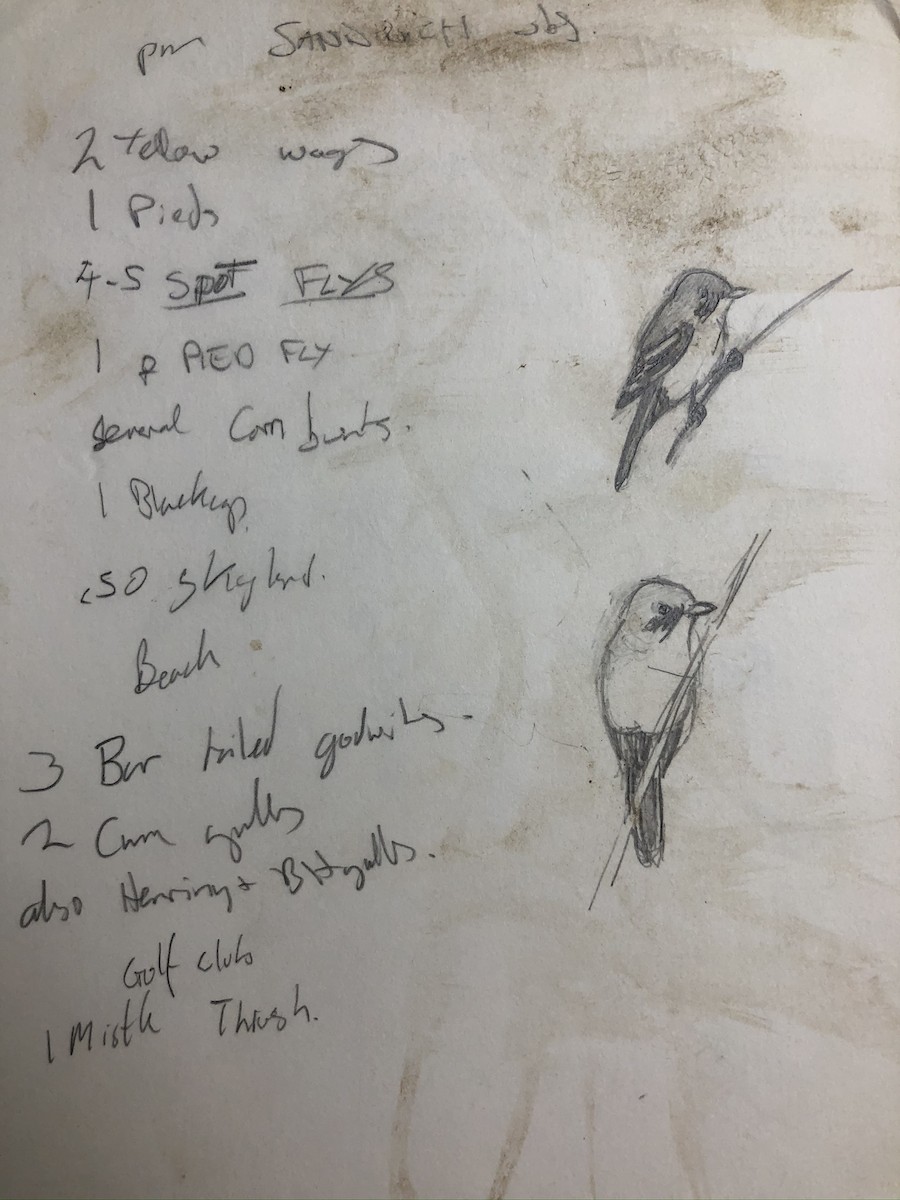 pm SANDWICH
2 Yellow wags
1 Pieds
4-5 SPOT FLYS
1 PIED FLY
several Corn bunts.
1 Blackcap
c50 skylard.
Beach
3 Bar tailed godwits.
2 Comm gulls
also Herring + BH gulls.
Golf club
1 Mistle Thrush.